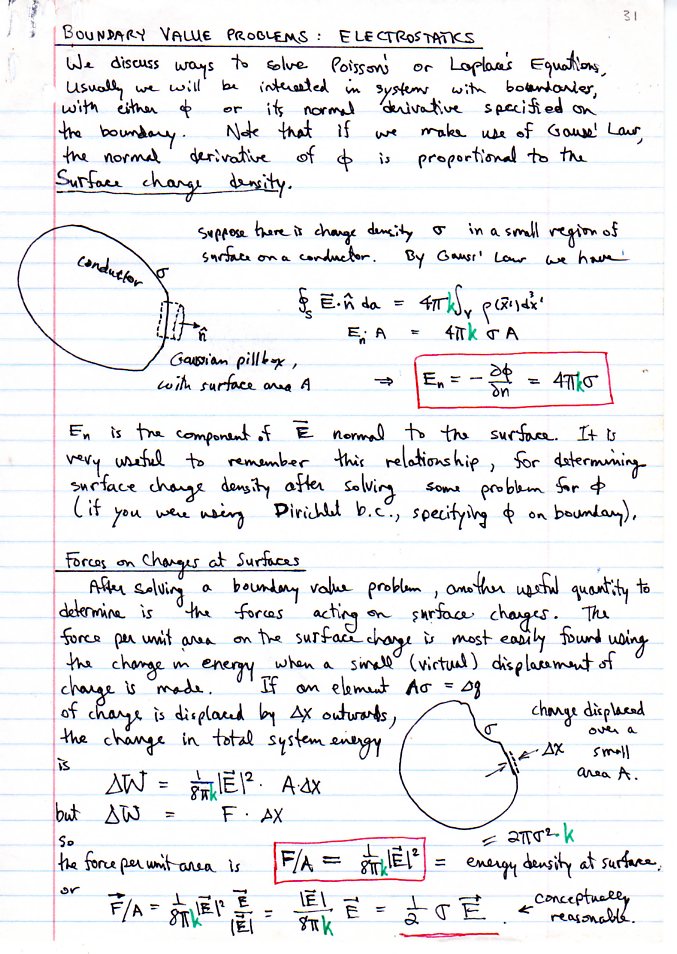 31
BOUNDARY VALUE PROBLEMS: ELECTROSTATICS
We discuss ways to solve Poisson's or Laplace's Equations,
Usually we will be interested in systems with boundaries,
with either ϕ or its normal derivative specified on
the boundary. Note that if we make use of Gauss' Law,
the normal derivative of ϕ is proportional to the
Surface charge density.
suppose there is charge density σ in a small region of
surface on a conductor. By Gauss' Law we have
conductor σ
n̂
∮_S E⃗·n̂ da = 4πk∫_V ρ(x⃗')d³x'
E_n·A = 4πk σ A
Gaussian pillbox,
with surface area A
⇒ E_n = -∂ϕ/∂n = 4πkσ
E_n is the component of E⃗ normal to the surface. It is
very useful to remember this relationship, for determining
surface charge density after solving some problem for ϕ
(if you were using Dirichlet b.c., specifying ϕ on boundary).
Forces on Charges at Surfaces
After solving a boundary value problem, another useful quantity to
determine is the forces acting on surface charges. The
force per unit area on the surface charge is most easily found using
the change in energy when a small (virtual) displacement of
charge is made. If an element Aσ = Δq
of charge is displaced by Δx outwards,
the change in total system energy
is
σ
Δx
charge displaced
over a
small
area A.
ΔW = 1/8πk |E⃗|²· A·Δx
but ΔW = F · Δx
so
= 2πσ²·k
the force per unit area is F/A = 1/8πk |E⃗|² = energy density at surface.
or
F⃗/A = 1/8πk |E⃗|² E⃗/|E⃗| = |E⃗|/8πk E⃗ = 1/2 σ E⃗. ← conceptually
reasonable.